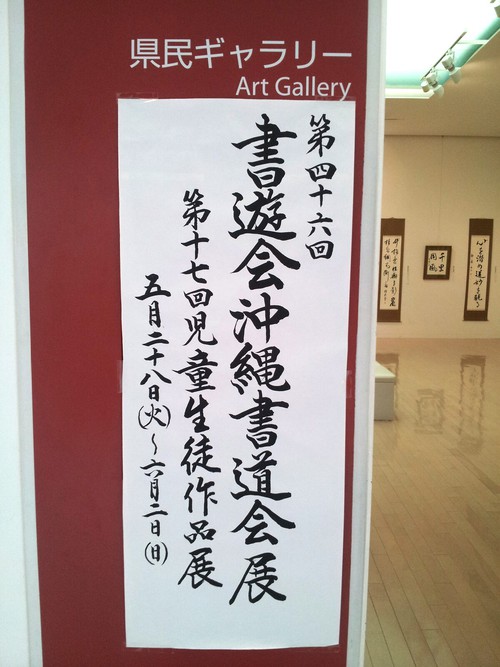 県民ギャラリー
Art Gallery
第四十六回
書遊会沖縄書道会展
第十七回児童生徒作品展
五月二十八日(火)〜六月二日(日)
千里
同風